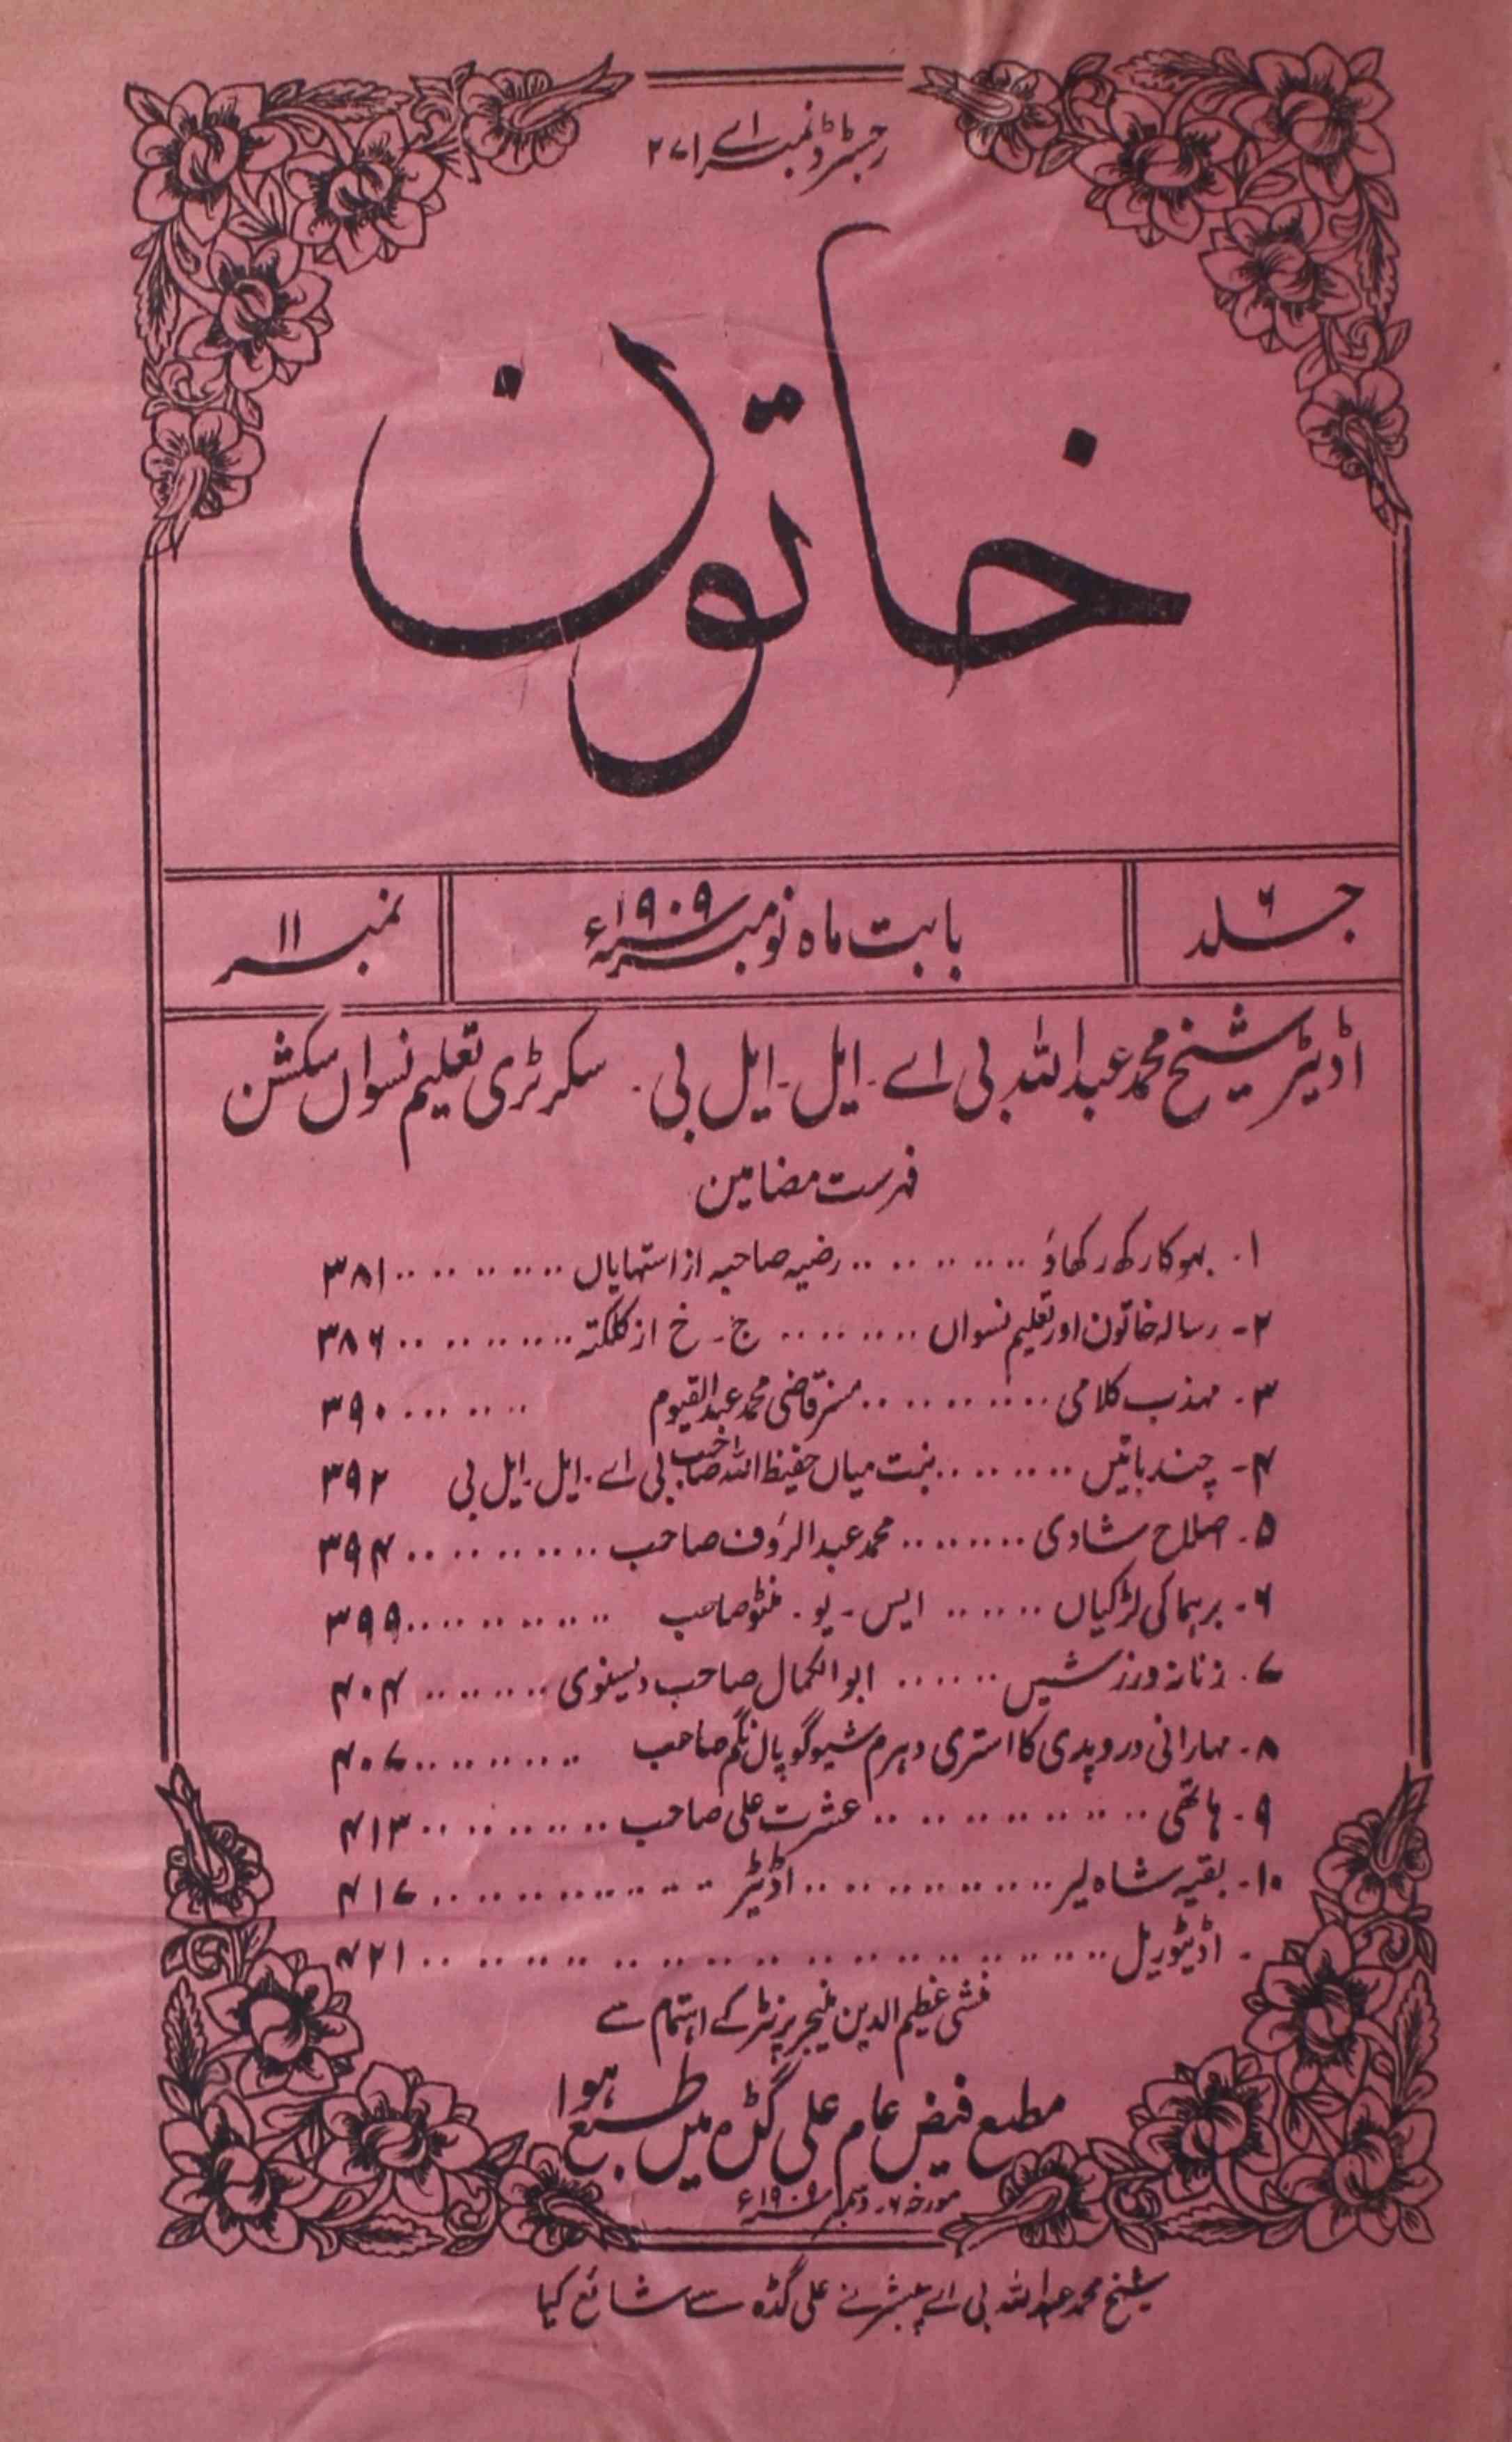 رجسٹرڈ نمبر اے ۲۷۱
خاتون
جلد ۶
بابت ماہ نومبر سنہ ۱۹۰۹ء
نمبر ۱۱
اڈیٹر شیخ محمد عبداللہ بی اے۔ ایل۔ ایل بی۔ سکرٹری تعلیم نسواں سکشن
فہرست مضامین
۱۔ بہو کا رکھ رکھاؤ .......... رضیہ صاحبہ از استہایاں .......... ۳۸۱
۲۔ رسالہ خاتون اور تعلیم نسواں .......... ج۔ خ از کلکتہ .......... ۳۸۶
۳۔ مہذب کلامی .......... مسز قاضی محمد عبدالقیوم .......... ۳۹۰
۴۔ چند باتیں .......... بنت میاں حفیظ اللہ صاحب بی اے۔ ایل۔ ایل بی ۳۹۲
۵۔ اصلاح شادی .......... محمد عبدالرؤف صاحب .......... ۳۹۴
۶۔ برہما کی لڑکیاں ...... ایس۔ یو۔ منٹو صاحب .......... ۳۹۹
۷۔ زنانہ ورزشیں ...... ابوالکمال صاحب دیسنوی .......... ۴۰۴
۸۔ مہارانی دروپدی کا استری دہرم شیوگوپال نگم صاحب .......... ۴۰۷
۹۔ ہاتھی .......... عشرت علی صاحب .......... ۴۱۳
۱۰۔ بقیہ شاہ لیر .......... اڈیٹر .......... ۴۱۷
۔ اڈیٹوریل .......... ۴۲۱
منشی عظیم الدین منیجر پرنٹر کے اہتمام سے
مطبع فیض عام علی گڈہ میں طبع ہوا
مورخہ ۶۔ دسمبر سنہ ۱۹۰۹ء
شیخ محمد عبداللہ بی اے پبلشر نے علی گڈہ سے شائع کیا